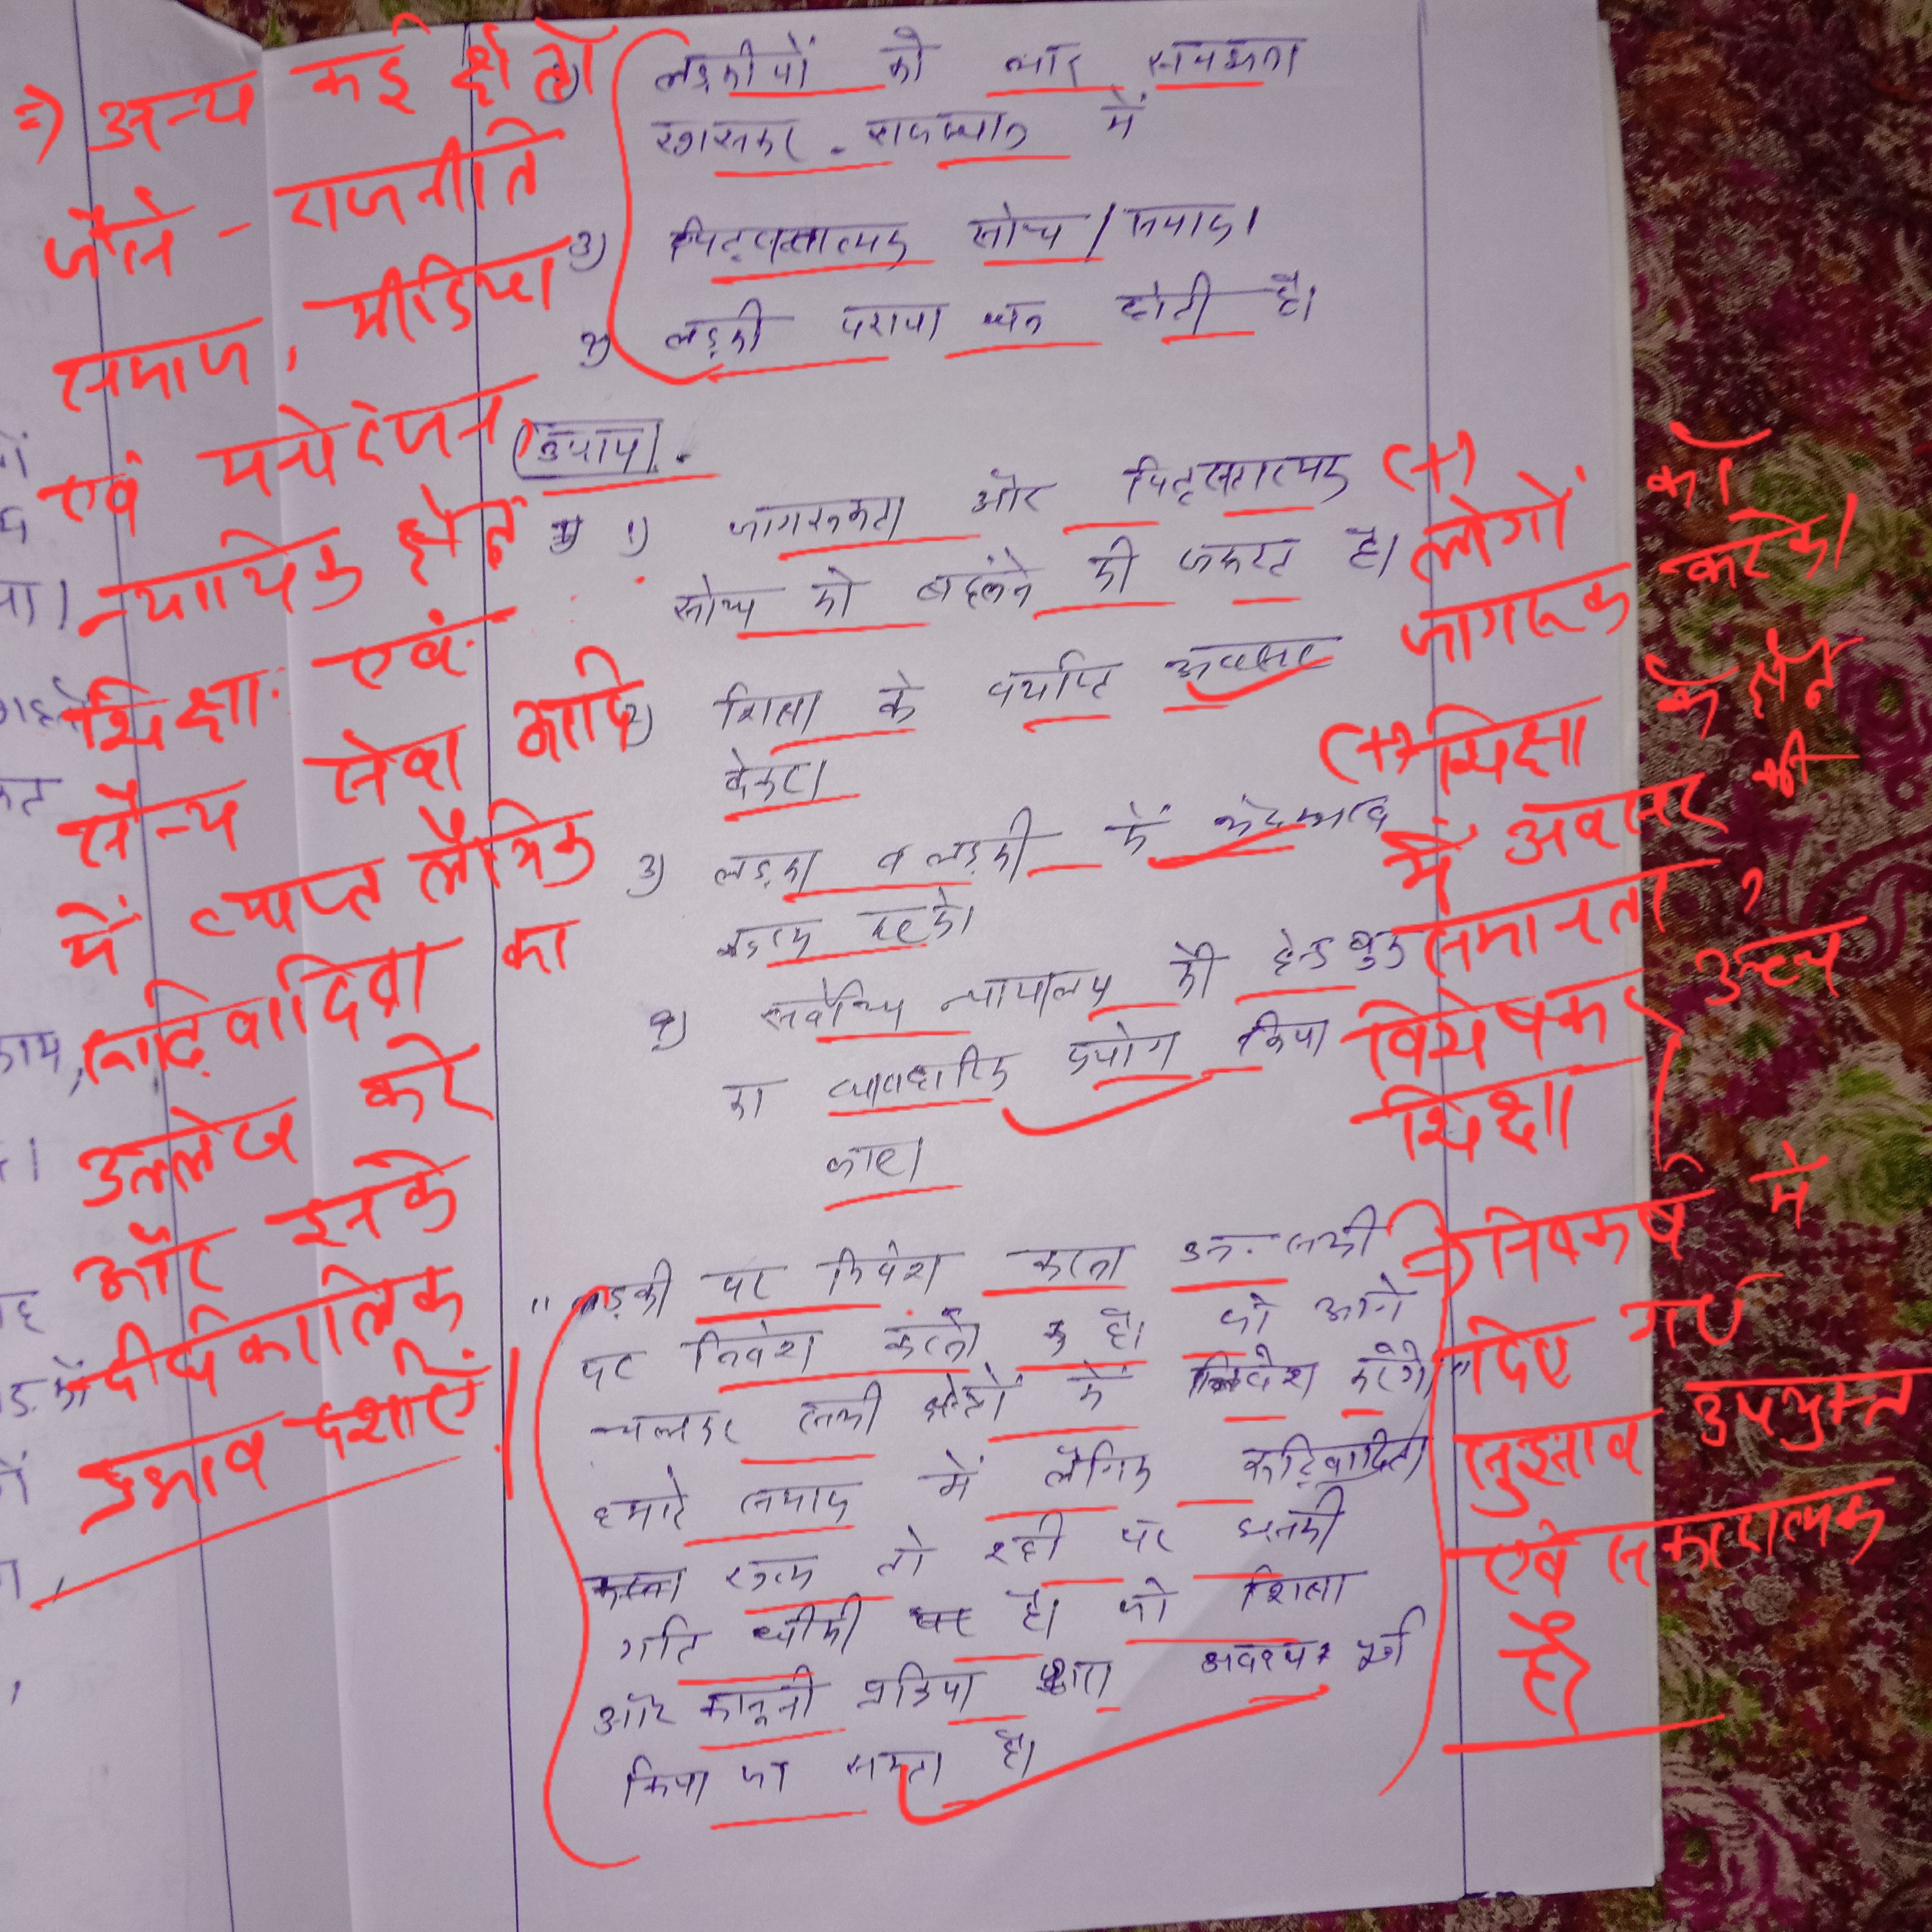 =) अन्य कई क्षेत्रों
जैसे - राजनीति
समाज, मीडिया
एवं मनोरंजन
न्यायिक क्षेत्र
शिक्षा एवं
सैन्य सेवा आदि
में व्याप्त लैंगिक
रूढ़िवादिता का
उल्लेख करे
और इनके
दीर्घकालिक
प्रभाव दर्शाएं।
लड़कीयों को भार समझना
खासकर - राजस्थान में
3) पितृसत्तात्मक सोच / समाज।
4) लड़की पराया धन होती है।
उपाय।
1) जागरूकता और पितृसतात्मक
सोच को बदलने की जरूरत है।
2) शिक्षा के पर्याप्त अवसर
देकर।
3) लड़का व लड़की में भेदभाव
खत्म करके।
4) सर्वोच्च न्यायालय की हेन्डबुक
का व्यावहारिक प्रयोग किया
जाए।
(+) लोगों को
जागरूक करके।
(+) शिक्षा के क्षेत्र
में अवसर की
समानता,
विशेषकर उच्च
शिक्षा
" लड़की पर निवेश करना उन सभी
पर निवेश करना है। जो आगे
चलकर सभी क्षेत्रों में निवेश करेंगे"
हमारे समाज में लैंगिक रूढ़िवादिता
खत्म तो रही पर इसकी
गति धीमी है। जो शिक्षा
और कानूनी प्रक्रिया द्वारा अवश्य
किया जा सकता है।
=) निष्कर्ष में
दिए गए
सुझाव उपयुक्त
एवं सकारात्मक
है।